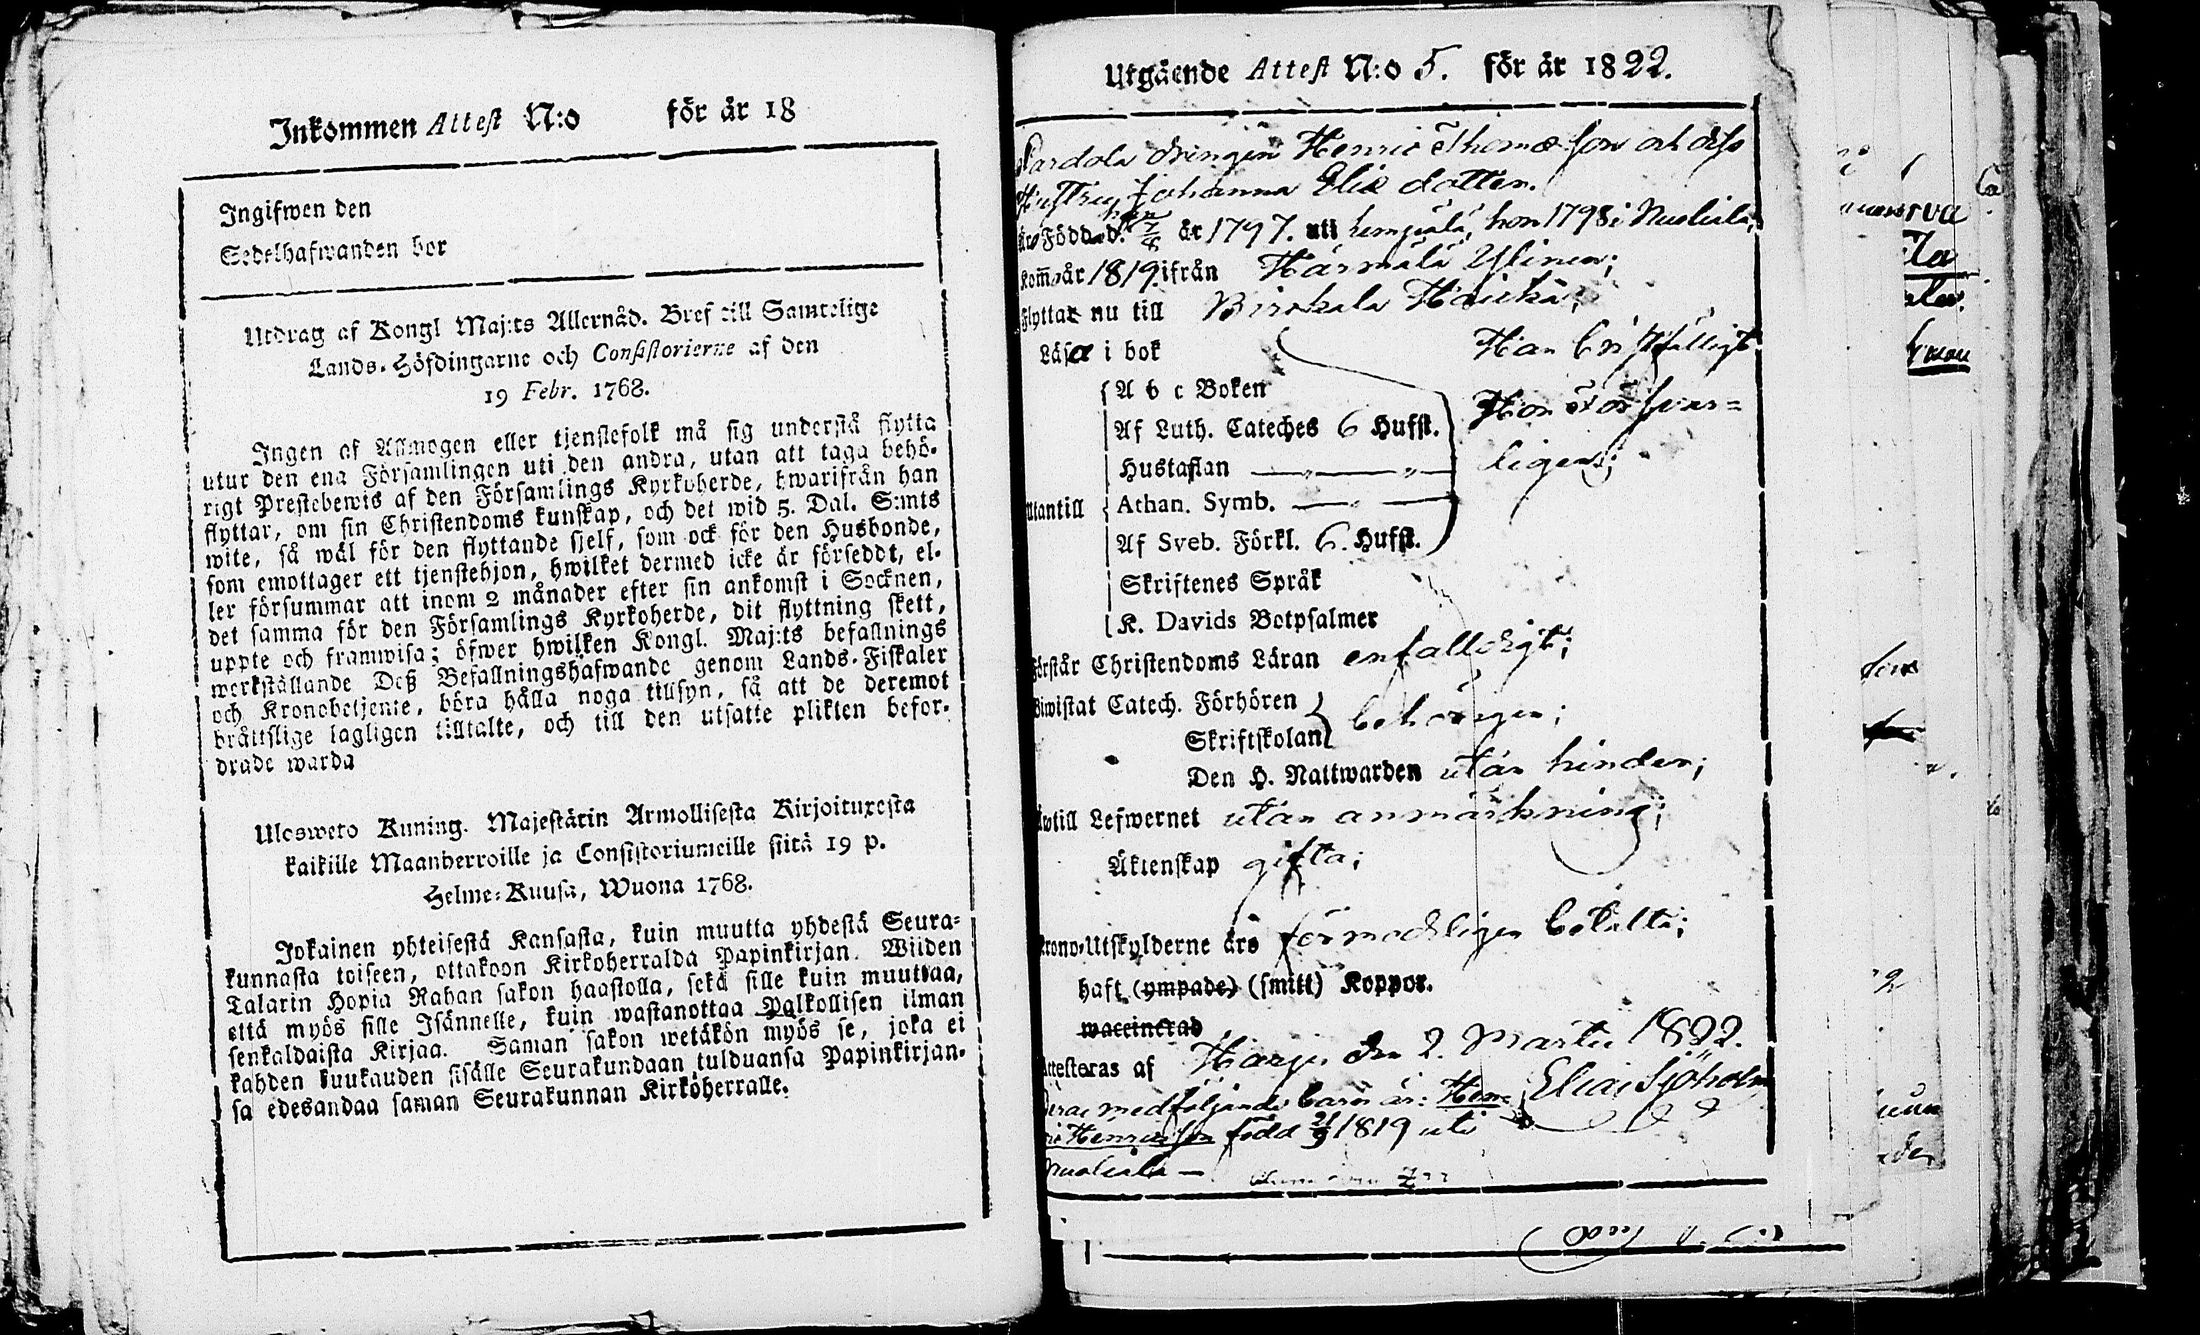 Inkommen Attest N:o för år 18
Ingifwen den
Sedelhafwanden bor
Utdrag af Kongl Maj:ts Allernåd. Bref till Samtelige
Lands-Höfdingarne och Consistorierne af den
19 Febr. 1768.
Ingen af Allmogen eller tjenstefolk må sig understå flytta
utur den ena Församlingen uti den andra, utan att taga behö-
rigt Prestebewis af den Församlings Kyrkoherde, hwarifrån han
flyttar, om sin Christendoms kunskap, och det wid 5. Dal. S:mts
wite, så wäl för den flyttande sjelf, som ock för den Husbonde,
som emottager ett tjenstehjon, hwilket dermed icke är försedt, el-
ler försummar att inom 2 månader efter sin ankomst i Socknen,
det samma för den Församlings Kyrkoherde, dit flyttning skett,
uppte och framwisa; öfwer hwilken Kongl. Maj:ts befallnings
werkställande Deß Befallningshafwande genom Lands-Fiskaler
och Kronobetjente, böra hålla noga tillsyn, så att de deremot
bråttslige lagligen tilltalte, och till den utsatte plikten befor-
drade warda
Ulosweto Kuning. Majestätin Armollisesta Kirjoituxesta
kaikille Maanherroille ja Consistoriumeille siitä 19 p.
Helme-Kuusa, Wuona 1768.
Jokainen yhteisestä Kansasta, kuin muutta yhdestä Seura-
kunnasta toiseen, ottakoon Kirkoherralda Papinkirjan. Wiiden
Talarin Hopia Rahan sakon haastolla, sekä sille kuin muuttaa,
että myös sille Isännelle, kuin wastanottaa Palkollisen ilman
senkaldaista Kirjaa. Saman sakon wetäkön myös se, joka ei
kahden kuukauden sisälle Seurakundaan tulduansa Papinkirjan-
sa edesandaa saman Seurakunnan Kirköherralle.
Utgående Attest N:o 5. för år 1822.
drängen Henric Thomæ son och dess
Hustru Johanna Eliæ dotter.
Född d. han 7/8 år 1797. uti hon 1798 i
kom år 1819 ifrån Härmälä Ylinen;
Flyttar nu till Birckala
Läsa i bok Han
A b c Boken
Af Luth. Cateches 6 Hufst. Hon försvar=
Hustaflan — „ — „ — ligen;
Utantill Athan. Symb. — „ —
Af Sveb. Förkl. 6. Hufst.
Skriftenes Språk
K. Davids Botpsalmer
Förstår Christendoms Läran enfalldigt;
Biwistat Catech. Förhören
Skriftskolan behörigen;
Den H. Nattwarden utan hinder;
till Lefwernet utan anmärkning;
Äktenskap gifta;
Krono-Utskylderne äro förmodligen betalta;
haft (ympade) (smitt) Koppor.
waccinerad
Attesteras af den 2. Martii 1822.
medföljande barn är: Hen= Elias Sjöholm
ric Henricsson född 21/9 1819 uti